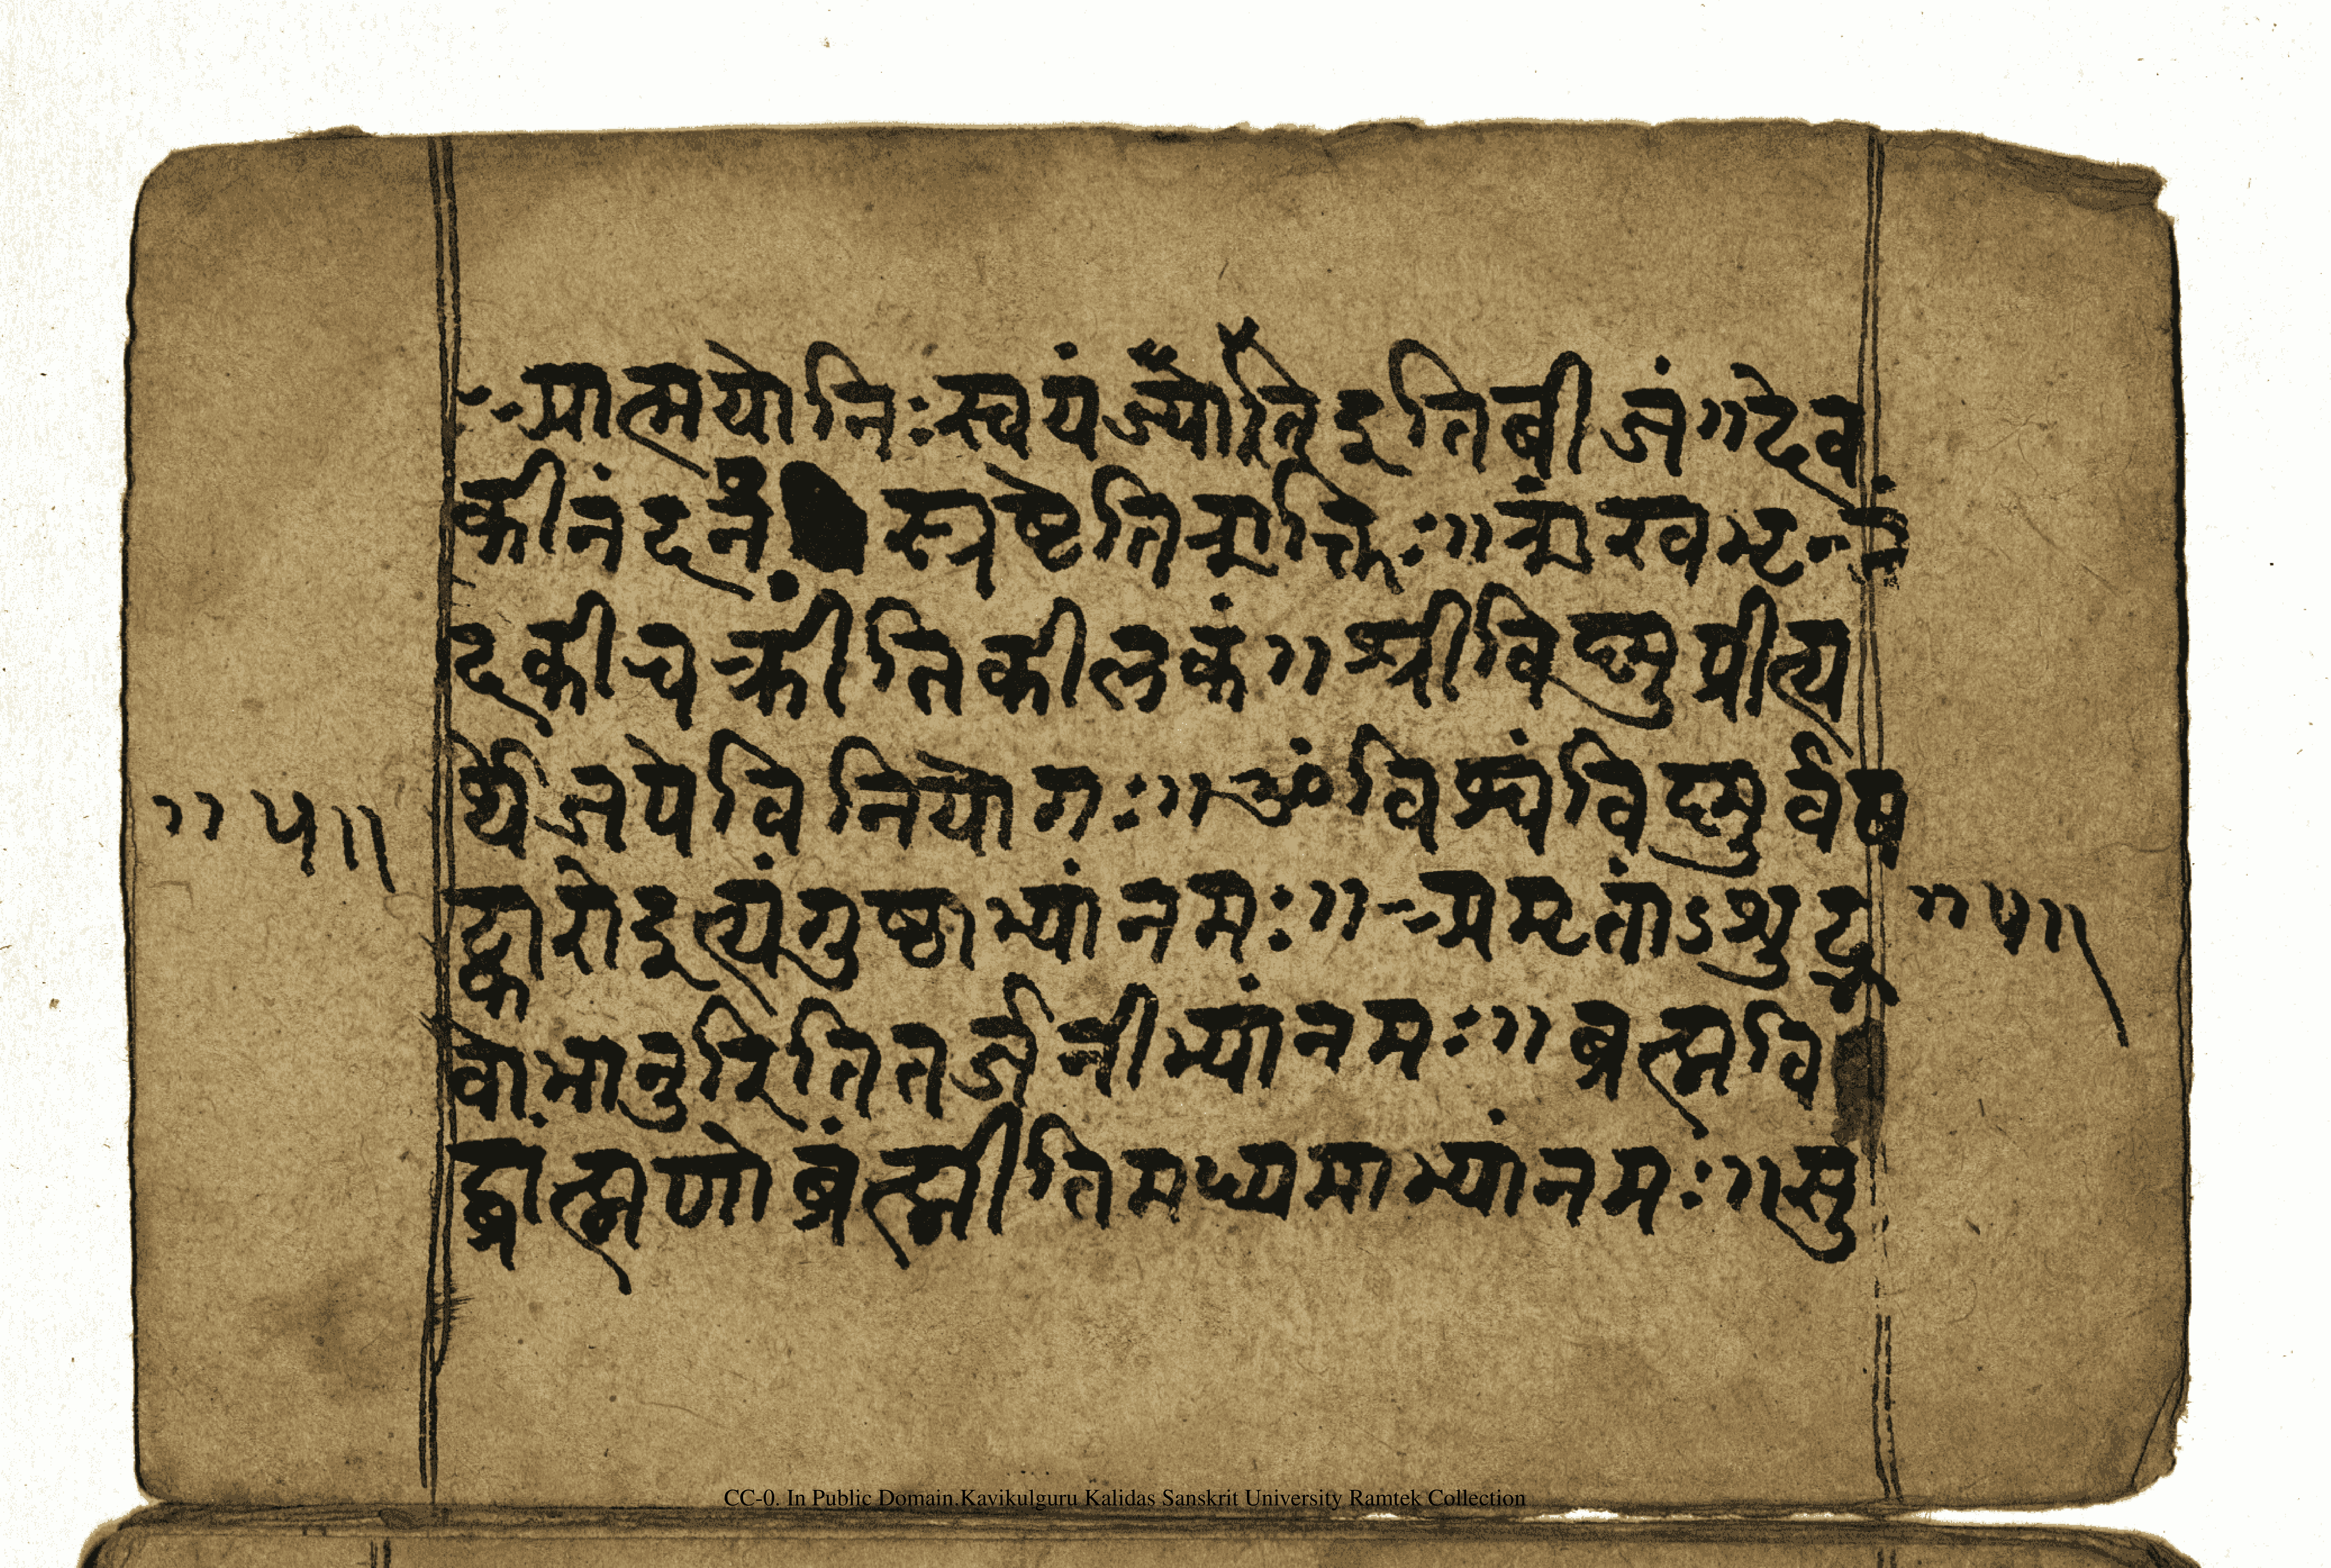 आत्मयोनिः स्वयंज्योतिरिति बीजं ॥ देव
कीनंदनः स्रष्टेति शक्तिः ॥ शंखभृन्नं
दकी चक्रीति कीलकं ॥ श्रीविष्णुप्रीत्य
र्थे जपे विनियोगः ॥ ॐ विश्वं विष्णुर्वष
॥ ५॥
ट्कारोइत्यंगुष्ठाभ्यां नमः ॥ अमृतांऽशुद्भ
॥ ५॥
वो भानुरिति तर्जनीभ्यां नमः ॥ ब्रह्मवि
द्ब्राह्मणो ब्रंह्मीति मध्यमाभ्यां नमः ॥ सु
CC-0. In Public Domain.Kavikulguru Kalidas Sanskrit University Ramtek Collection